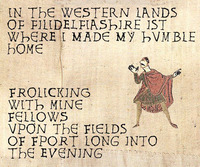 IN THE WESTERN LANDS
OF FILIDELFIASHIRE IST
WHERE I MADE MY HVMBLE
HOME
FROLICKING
WITH MINE
FELLOWS
VPON THE FIELDS
OF FPORT LONG INTO
THE EVENING